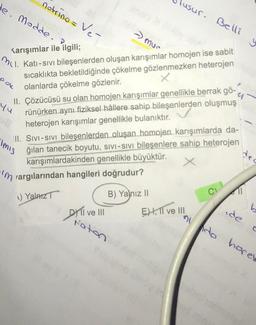 nötrino = Ve-
olusur. Belli
Madde.
Karışımlar ile ilgili;
I. Katı-sıvı bileşenlerden oluşan karışımlar homojen ise sabit
sıcaklıkta bekletildiğinde çökelme gözlenmezken heterojen
olanlarda çökelme gözlenir.
II. Çözücüsü su olan homojen karışımlar genellikle berrak gö-
rünürken aynı fiziksel hâllere sahip bileşenlerden oluşmuş
heterojen karışımlar genellikle bulanıktır.
II. Sıvı-sıvı bileşenlerden oluşan homojen karışımlarda da-
ğılan tanecik boyutu, sıvı-sıvı bileşenlere sahip heterojen
karışımlardakinden genellikle büyüktür.
yargılarından hangileri doğrudur?
A) Yalnız I
B) Yalnız II
C)
D) II ve III
E) I, II ve III